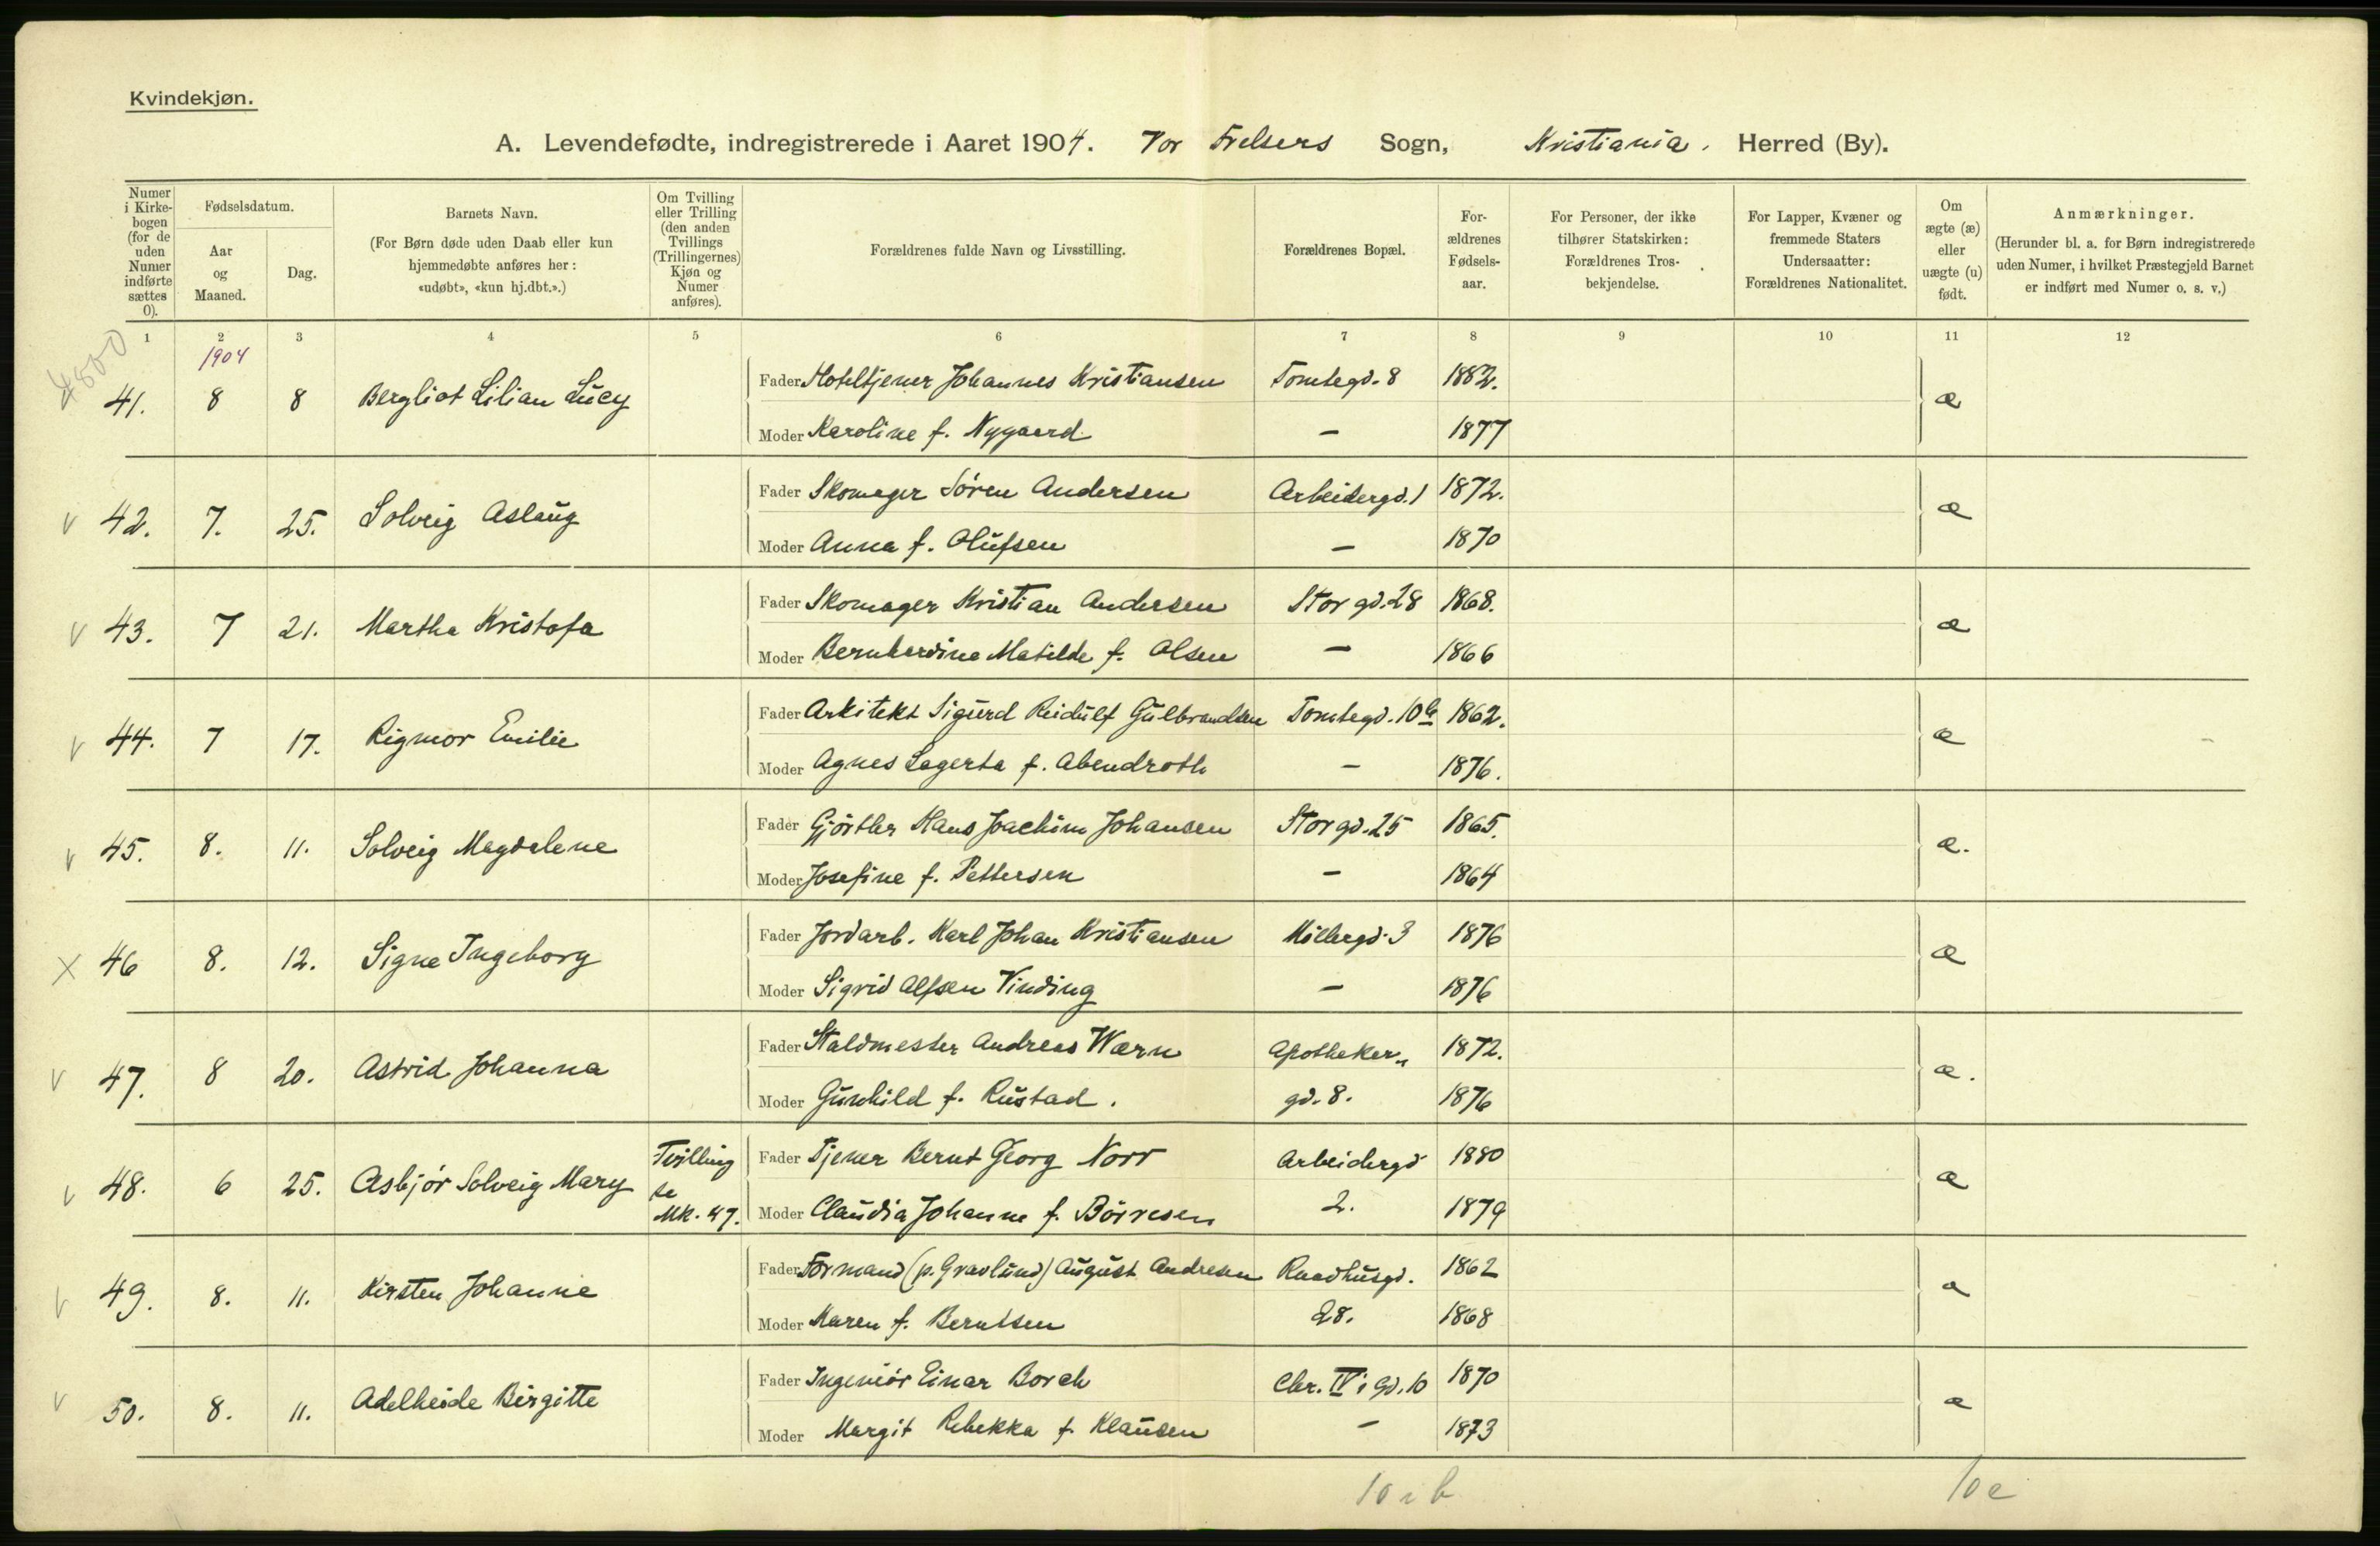 Kvindekjøn.
A. Levendefødte, indregistrerede i Aaret 1904. Vor Frelsers Sogn, Kristiania. Herred (By).
Numer i Kirke-bogen (for de uden Numer indførte sættes 0).
Fødselsdatum.
Aar og Maaned.
Dag.
Barnets Navn.
(For Børn døde uden Daab eller kun hjemmedøbte anføres her: «udøbt», «kun hj.dbt.».)
Om Tvilling eller Trilling (den anden Tvillings (Trillingernes) Kjøn og Numer anføres).
Forældrenes fulde Navn og Livsstilling.
Forældrenes Bopæl.
For-ældrenes Fødsels-aar.
For Personer, der ikke tilhører Statskirken: Forældrenes Tros-bekjendelse.
For Lapper, Kvæner og fremmede Staters Undersaatter: Forældrenes Nationalitet.
Om ægte (æ) eller uægte (u) født.
Anmærkninger.
(Herunder bl. a. for Børn indregistrerede uden Numer, i hvilket Præstegjeld Barnet er indført med Numer o. s. v.)
1 2 3 4 5 6 7 8 9 10 11 12
4800
1904
41. 8 8 Bergliot Lilian Lucy Fader Hoteltjener Johannes Kristiansen Tomtegd. 8 1882. æ
Moder Karoline f. Nygaard — 1877
v 42. 7. 25. Solveig Aslaug Fader Skomager Søren Andersen Arbeidergd. 1 1872. æ
Moder Anna f. Olufsen — 1870
v 43. 7 21. Martha Kristofa Fader Skomager Kristian Andersen Storgd. 28 1868. æ
Moder Bernhardine Matilde f. Olsen — 1866
v 44. 7 17. Rigmor Emilie Fader Arkitekt Sigurd Reidulf Gulbrandsen Tomtegd. 10b 1862. æ
Moder Agnes Lagerta f. Abendroth — 1876.
v 45. 8. 11. Solveig Magdalene Fader Gjørtler Hans Joachim Johansen Storgd. 25 1865. æ.
Moder Josefine f. Pettersen — 1864
x 46 8. 12. Signe Ingeborg Fader Jordarb. Karl Johan Kristiansen Møllergd. 3 1876 æ
Moder Sigrid Alfsen Vinding — 1876
v 47. 8 20. Astrid Johanna Fader Staldmester Andreas Wærn Apotheker„ 1872. æ.
Moder Gunhild f. Rustad. gd. 8. 1876
v 48. 6 25. Asbjør Solveig Mary Tvilling se Mk. 47. Fader Tjener Bernt Georg Norr Arbeidergd 1880 æ
Moder Claudia Johanne f. Børresen 2. 1879
v 49. 8. 11. Kirsten Johanne Fader Formand (p. Gravlund) August Andresen Raadhusgd. 1862 æ
Moder Maren f. Berntsen 28. 1868
v 50. 8. 11. Adelheide Birgitte Fader Ingeniør Einar Borch Chr. IVs Gd. 10 1870 æ
Moder Margit Rebekka f. Klausen — 1873
10 i b 10 e